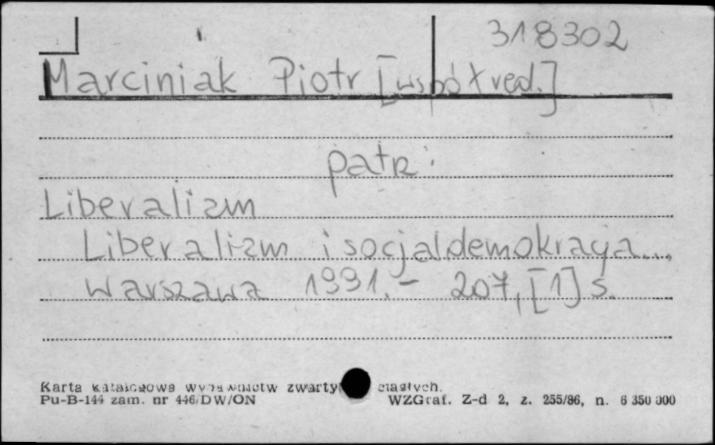 318302
Marciniak Piotr [współred.]
patrz:
Liberalizm
Liberalizm i socjaldemokracja...
Warszawa 1991.- 207, [1] s.
Karta katalogowa wydawnictw zwartych ciągłych.
Pu-B-144 zam. nr 446/DW/ON WZGraf. Z-d 2, z. 255/86, n. 6 350 000